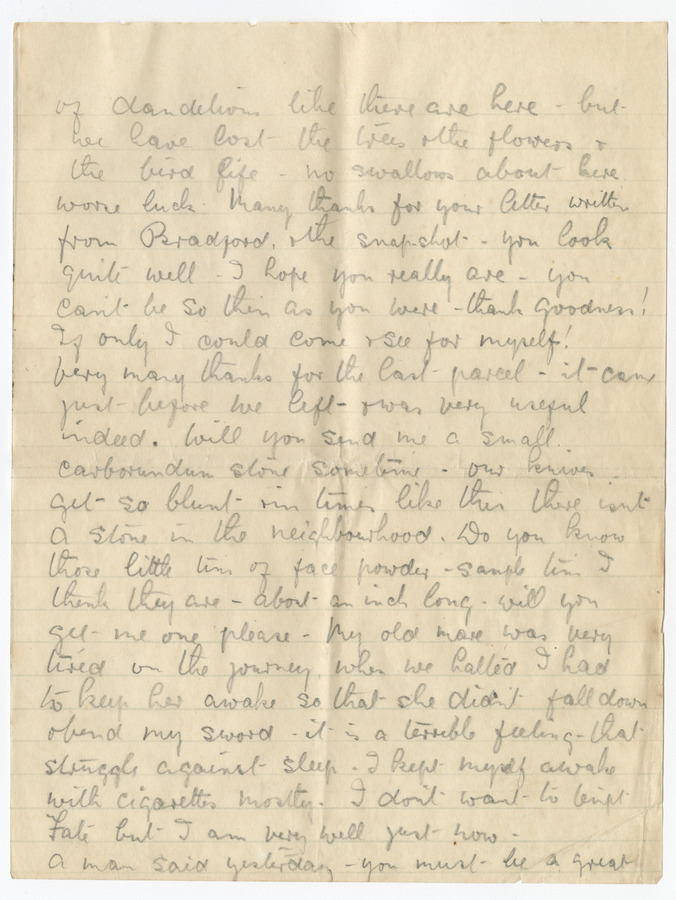 of dandelions like there are here - but
we have lost the trees & the flowers &
the bird life - no swallows about here
worse luck. Many thanks for your letter written
from Bradford, & the snap-shot - you look
quite well - I hope you really are - you
can't be so thin as you were - thank goodness!
If only I could come & see for myself!
Very many thanks for the last parcel - it came
just before we left & was very useful
indeed. Will you send me a small
carborundum stone sometime - our knives
get so blunt & in times like this there isnt
a stone in the neighbourhood. Do you know
those little tins of face powder - sample tins I
think they are - about an inch long - will you
get me one please - My old mare was very
tired on the journey, when we halted I had
to keep her awake so that she didn't fall down
& bend my sword - it is a terrible feeling - that
struggle against sleep - I kept myself awake
with cigarettes mostly. I don't want to tempt
Fate but I am very well just now -
A man said yesterday - you must be a great